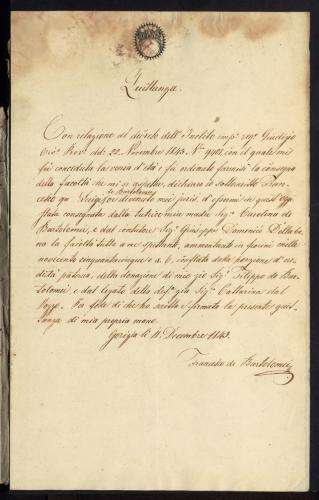 Quittanza.
Con relazione al decreto dell'Inclito imp. reg. Giudizio
Civ. Prov. dd: 22. Novembre 1843. N. 9401, con il quale mi
fù concedata la venia d'età e fù ordinato farmisi la consegna
della facoltà che mi si aspetta, dichiaro io sottoscritto Fran-
de Bartolomei
cesco qu. Luigi divenuto
esser mi quest'oggi
stata consegnata dalla tutrice mia madre Sig. Carolina de
Bartolomei, e dal contutore Sig. Giuseppe Domenico Dellabo-
na la facoltà tutta a me spettante, ammontante in fiorini mille
novecento cinquantacinque e a. 6, risultata dalla porzione d'ere-
dità paterna, della donazione di mio zio Sig. Filippo de Bar-
tolomei, e dal legato della Sig. Cattarina dal
Pozzo. In fede di che ho scritta e firmata la presente quit-
tanza di mia propria mano.
Gorizia li 11. Decembre 1843.
Francesco de Bartolomei